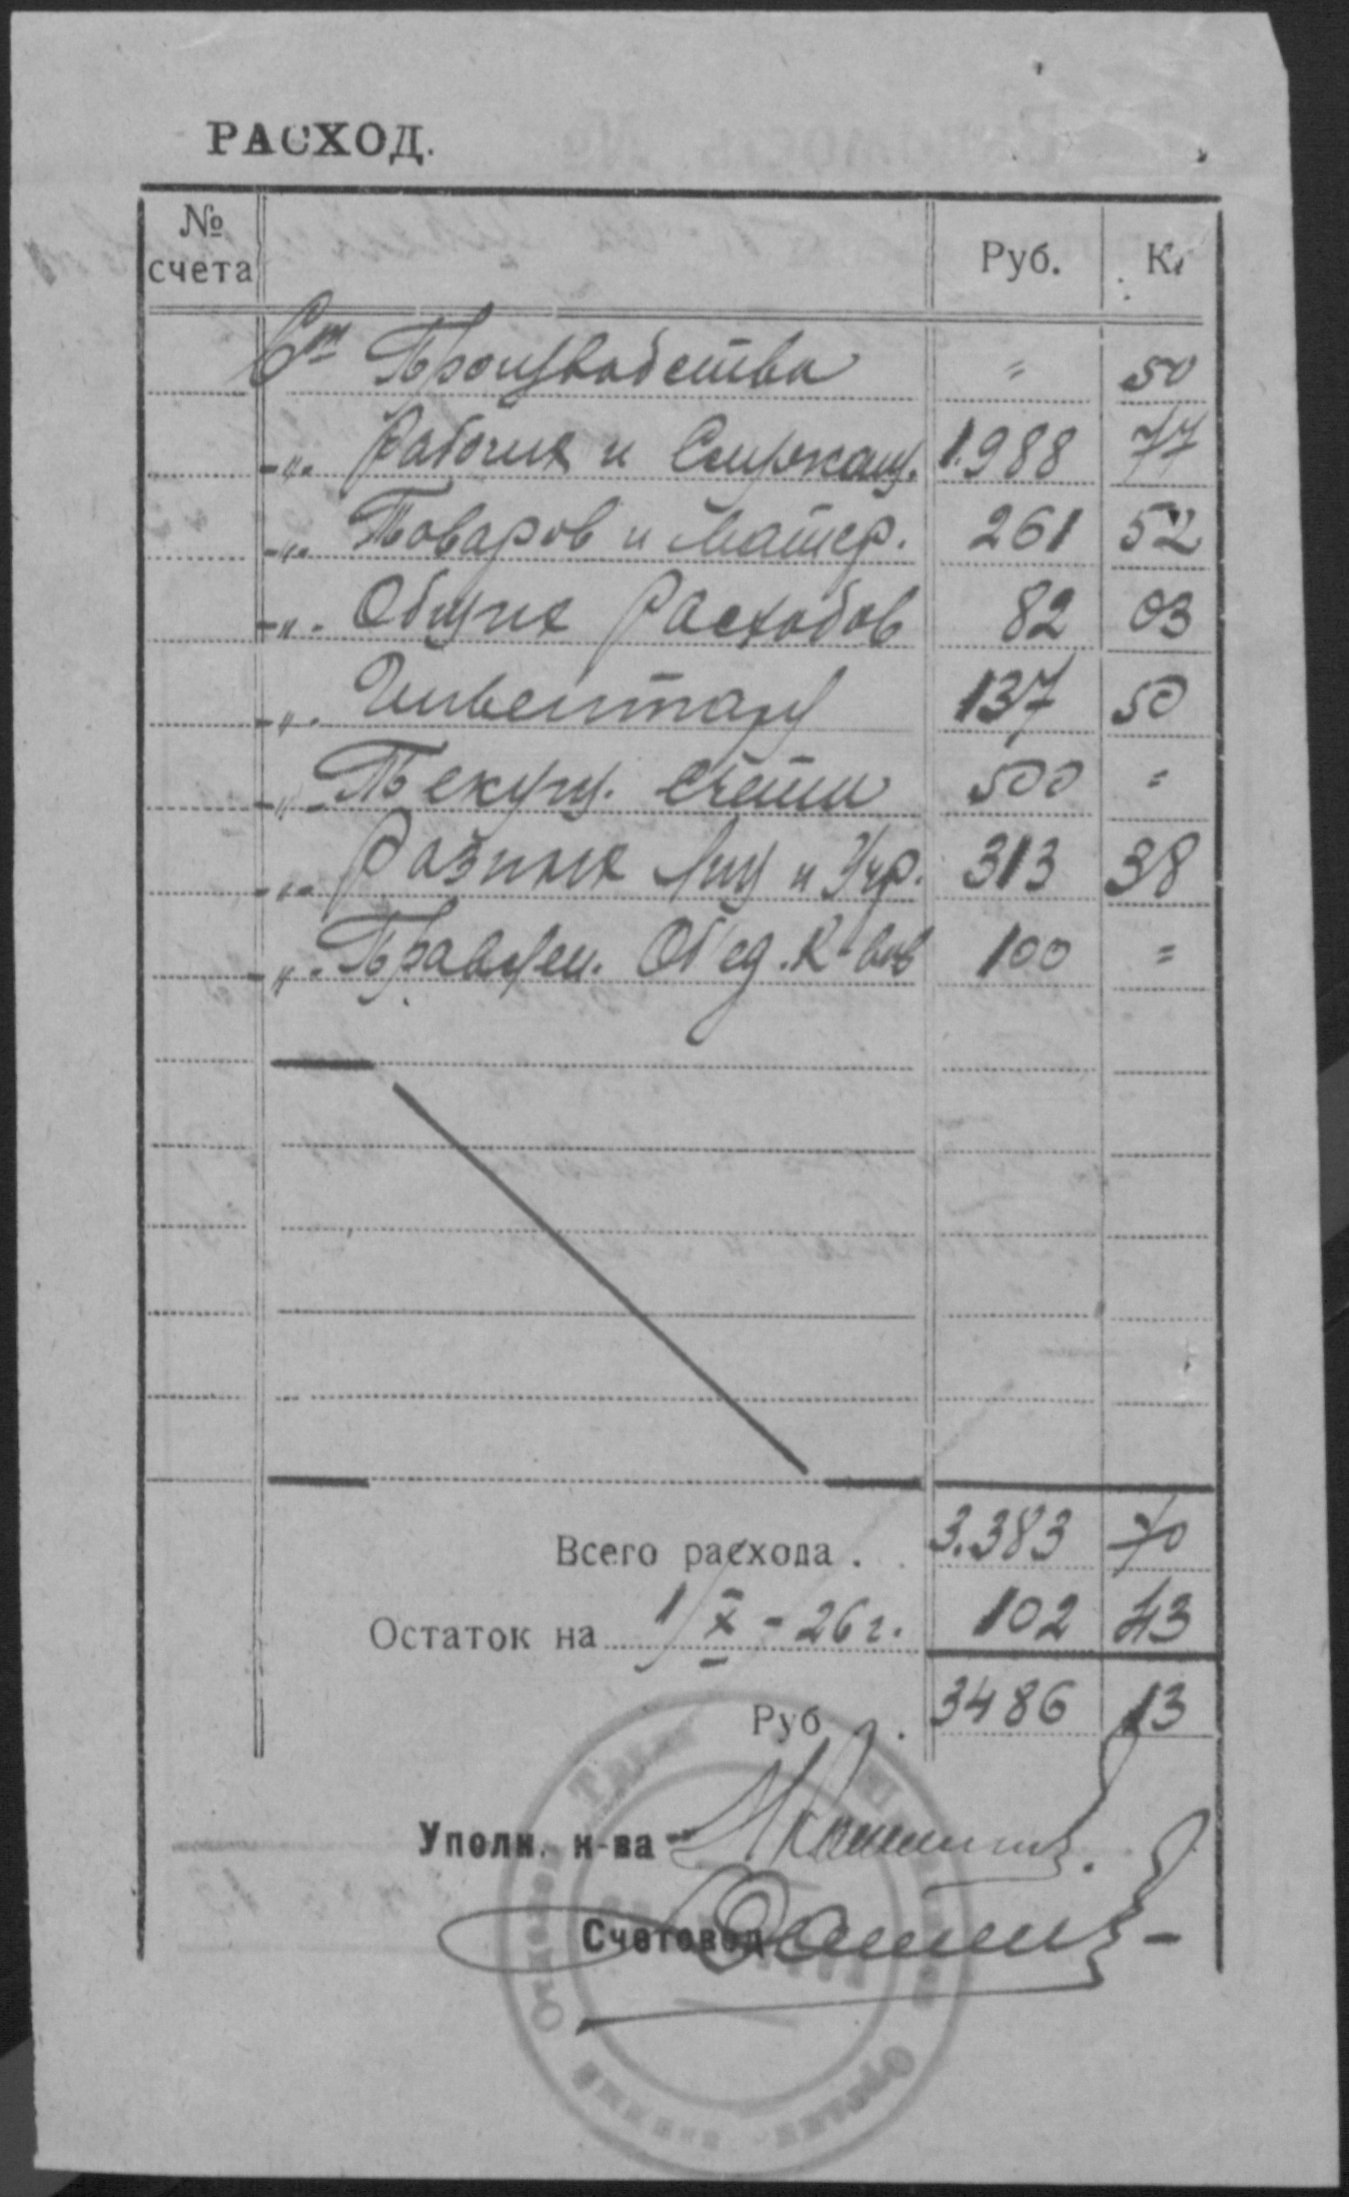 РАСХОД.
№ счета Руб. К.
Сч Производства " 50
-„- Рабочих и Служащ. 1.988 77
-„- Товаров и Матер. 261 52
-„- Общих Расходов 82 03
-„- Инвентаря 137 50
-„- Текущ. счета 500 =
-„- Разных Лиц и Учр. 313 38
-„- Правлен. Об'ед. К-вов 100 =
Всего расхода . . 3.383 70
Остаток на 1/X - 26 г. 102 43
Руб. 3486 13
Уполн. к-ва
Счетовод